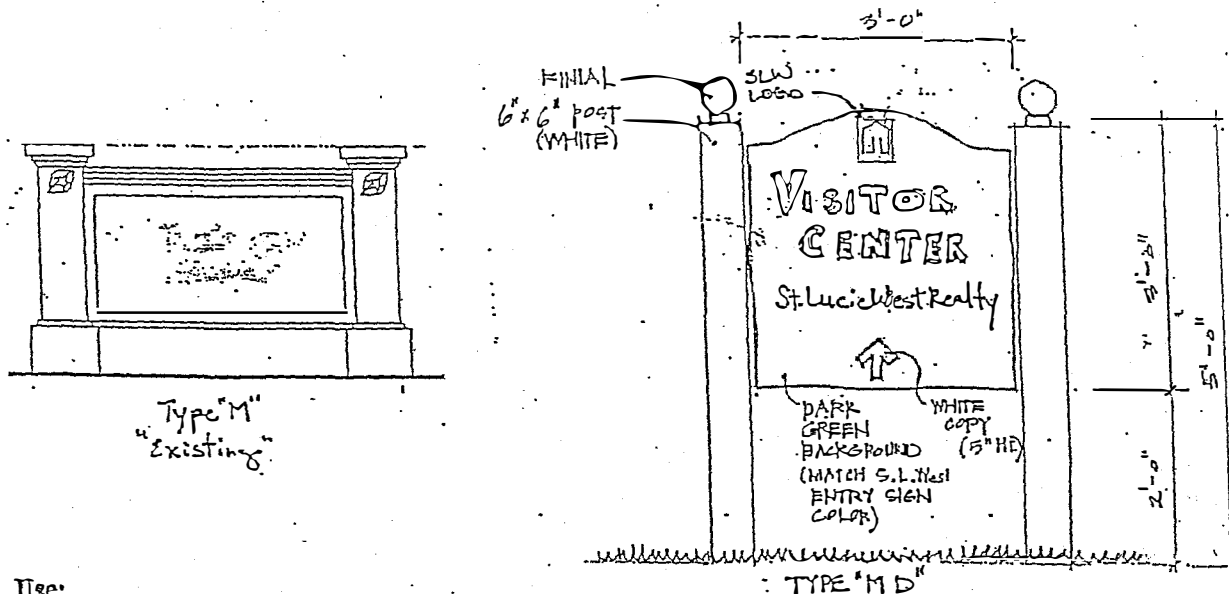 Type "M"
"Existing"
3'-0"
FINIAL
6" x 6" POST
(WHITE)
SLW
LOGO
VISITOR
CENTER
St. Lucie West Realty
DARK
GREEN
BACKGROUND
(MATCH S.L. West
ENTRY SIGN
COLOR)
WHITE
COPY
(5" HT)
3'-0"
5'-0"
2'-0"
TYPE "MD"
Use: